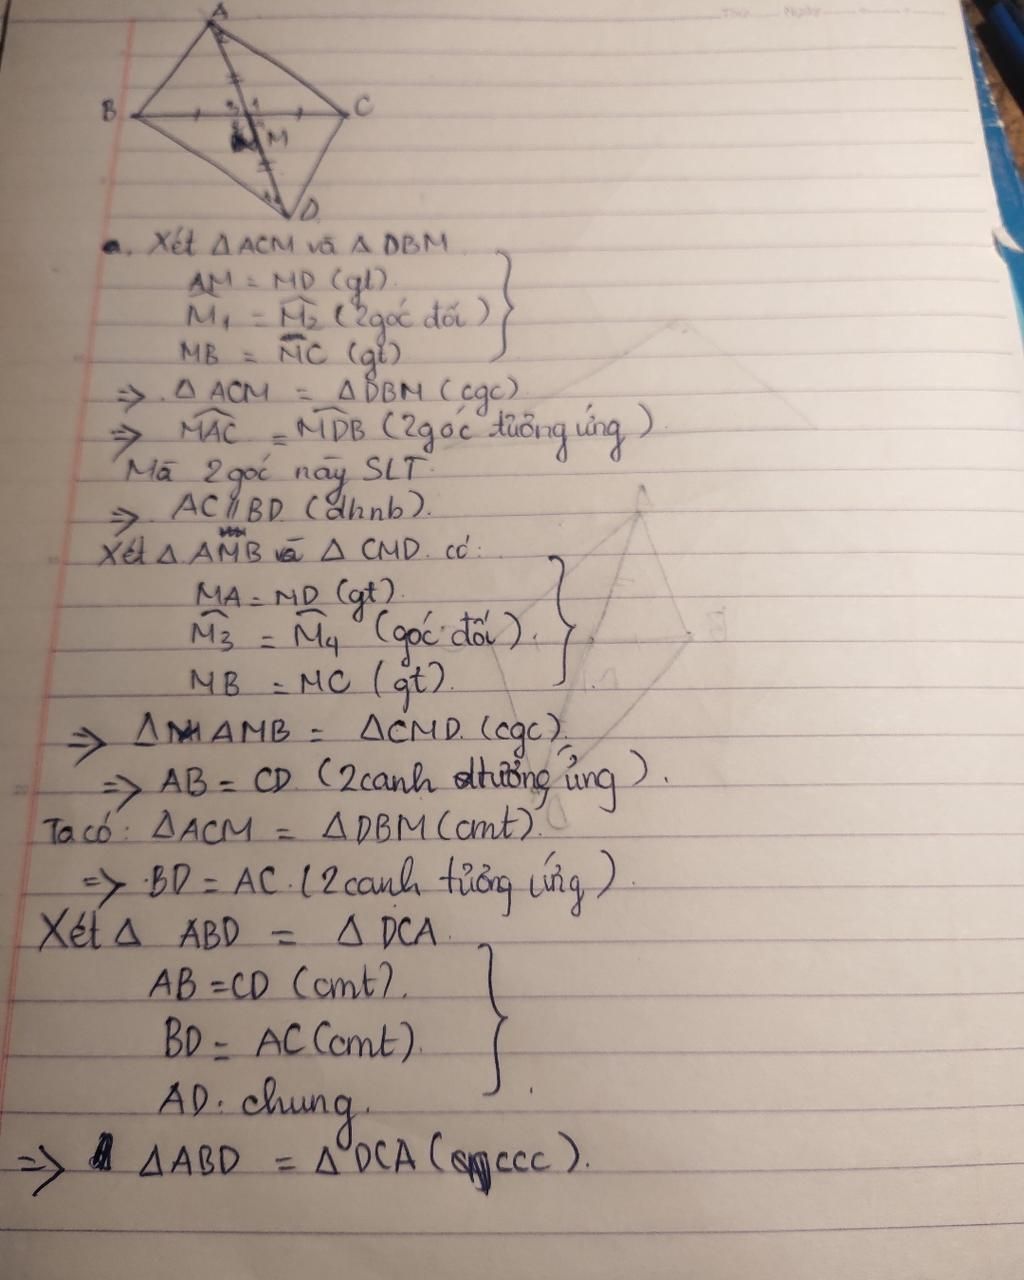 A
B
C
3 1
M
D
a. Xét Δ ACM và Δ DBM
AM = MD (gt).
M̂₁ = M̂₂ (2góc đối)
MB = MC (gt)
=> Δ ACM = Δ DBM (cgc)
=> MAC = MDB (2góc tương ứng).
Mà 2 góc này SLT.
=> AC // BD (dhnb).
Xét Δ AMB và Δ CMD. có:
MA = MD (gt).
M̂₃ = M̂₄ (góc đối).
MB = MC (gt).
=> Δ AMB = ΔCMD (cgc).
=> AB = CD (2canh tương ứng).
Ta có: ΔACM = ΔDBM (cmt).
=> BD = AC. (2canh tương ứng).
Xét Δ ABD = Δ DCA.
AB = CD (cmt).
BD = AC (cmt).
AD. chung.
=> ΔABD = Δ DCA (ccc).